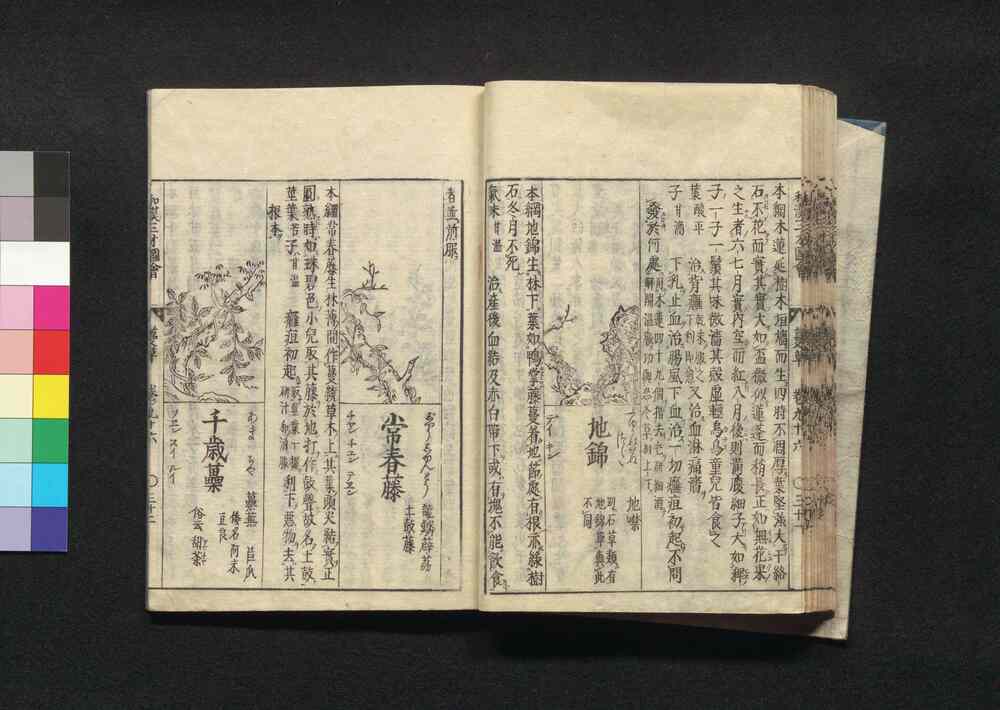 本綱木蓮延樹木垣墻而生四時不凋厚葉堅強大于絡
石不花而實其實大如盃微似蓮蓬而稍長正如無花果
之生者六七月實内空而紅八月後則滿腹細子大如稗
子一子一鬚其味微濇其殼虛輕烏鳥童兒皆食之
葉酸平 治背癰 下利即愈 又治血淋痛濇
子甘濇 下乳止血治腸風下血治一切癰疽初起不問
發於何處
地錦
地噤
ティ キン
別石草類有
地錦草與此
不同
本綱地錦生林下葉如鴨掌藤蔓着地節處有根亦緣樹
石冬月不死
氣味甘温 治產後血結及赤白帶下或有塊不能飲食
者並煎服
常春藤
龍鱗薜荔
土鼓藤
チヤン チユン テエン
本綱常春藤生林薄間作蔓繞草木上其葉頭尖結實正
圓熟時如珠碧色小兒取其藤於地打作鼓聲故名土鼓
莖葉苦子甘温 癰疽初起 利下惡物去其
根本
千歳蘽
蘡蕪 苣瓜
倭名阿末
豆良
俗云甜茶
ツエン スイ ルイ
和漢三才圖會